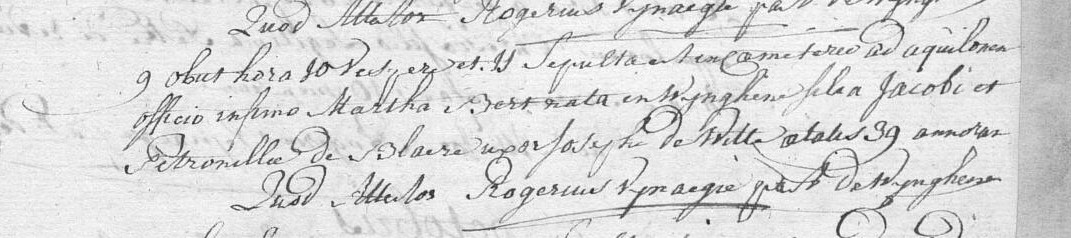 Quod Attestor Rogerius Vynaegie past de Wyngh
9 obiit hora 10 Vespere et 11 Sepulta est in Cameterio ad aquilonem
officio infimo Martha Bert nata in Wynghene filia Jacobi et
Petronillæ de Blaere uxor Josephi de Witte ætatis 39 annorum
Quod Attestor Rogerius Vynaegie past de Wynghene